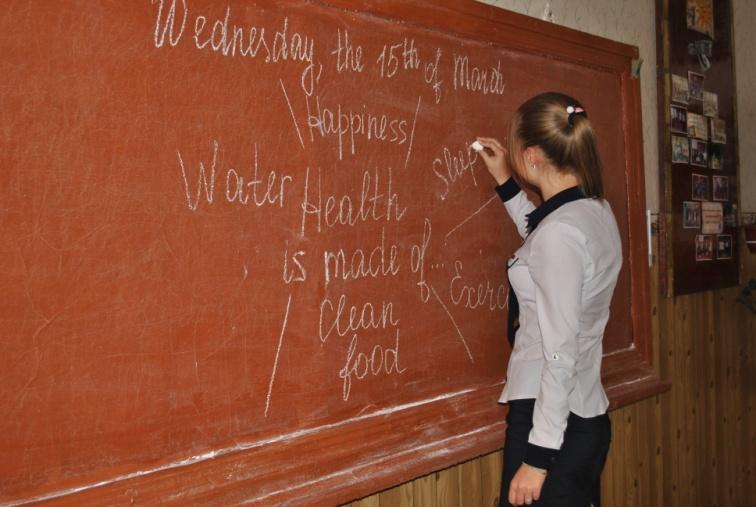 Wednesday, the 15th of March
Happiness
Water
Sleep
Health
is made of...
Exerc
clean
food